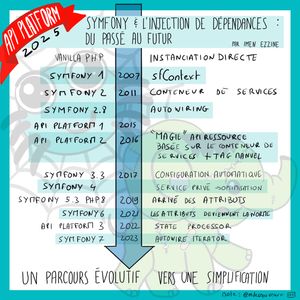 API PLATFORM
2025
SYMFONY & L'INJECTION DE DÉPENDANCES :
DU PASSÉ AU FUTUR
PAR IMEN EZZINE
VANILLA PHP INSTANCIATION DIRECTE
SYMFONY 1 2007 SfContext
SYMFONY 2 2011 CONTENEUR DE SERVICES
SYMFONY 2.8 AUTOWIRING
API PLATFORM 1 2015
API PLATFORM 2 2016 "MAGIE" API RESSOURCE
BASÉE SUR LE CONTENEUR DE
SERVICES + TAG MANUEL
SYMFONY 3.3 2017 CONFIGURATION AUTOMATIQUE
SYMFONY 4 SERVICE PRIVÉ
SYMFONY 5.3 PHP8 2019 ARRIVÉ DES ATTRIBUTS
SYMFONY 6 2021 LES ATTRIBUTS DEVIENNENT LA NORME
API PLATFORM 3 2022 STATE PROCESSOR
SYMFONY 7 2023 AUTOWIRE ITERATOR
UN PARCOURS ÉVOLUTIF VERS UNE SIMPLIFICATION